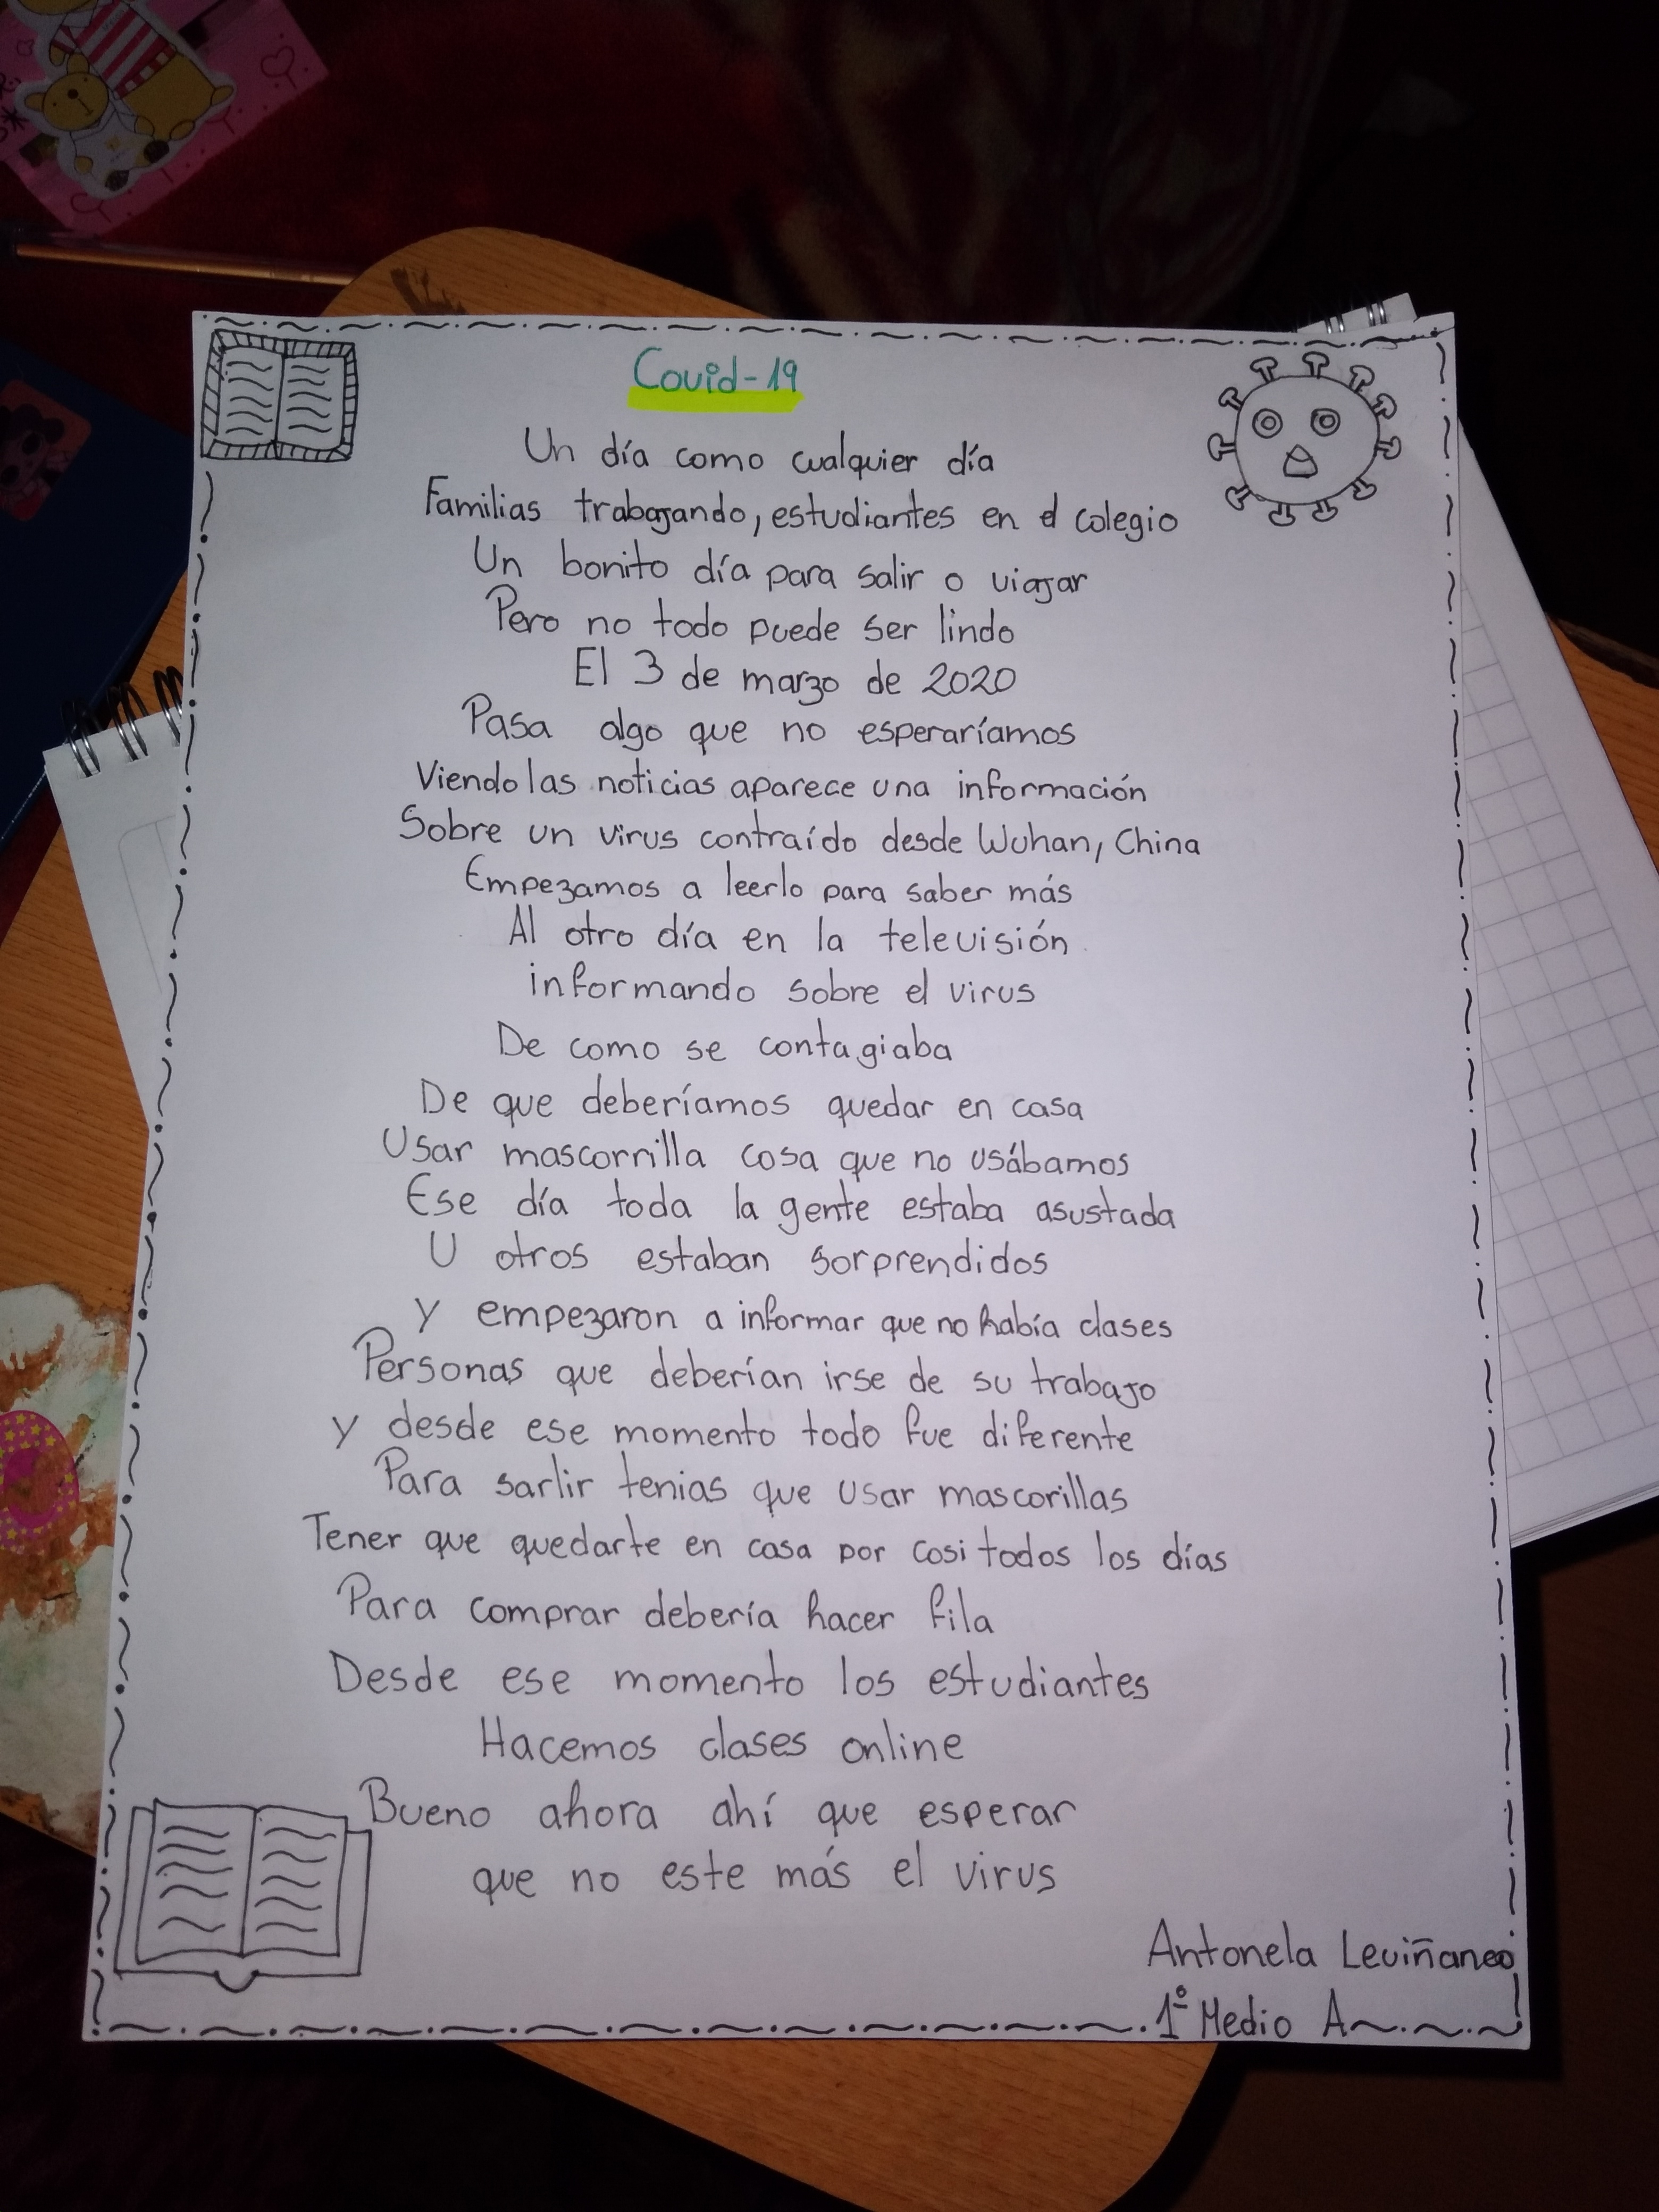 Covid-19
Un día como cualquier día
Familias trabajando, estudiantes en el colegio
Un bonito día para salir o viajar
Pero no todo puede ser lindo
El 3 de marzo de 2020
Pasa algo que no esperaríamos
Viendo las noticias aparece una información
Sobre un virus contraído desde Wuhan, China
Empezamos a leerlo para saber más
Al otro día en la televisión
informando sobre el virus
De como se contagiaba
De que deberíamos quedar en casa
Usar mascorrilla cosa que no usábamos
Ese día toda la gente estaba asustada
U otros estaban sorprendidos
Y empezaron a informar que no había clases
Personas que deberían irse de su trabajo
y desde ese momento todo fue diferente
Para sarlir tenias que usar mascorillas
Tener que quedarte en casa por casi todos los días
Para comprar debería hacer fila
Desde ese momento los estudiantes
Hacemos clases online
Bueno ahora ahí que esperar
que no este más el virus
Antonela Leviñanco
1º Medio A